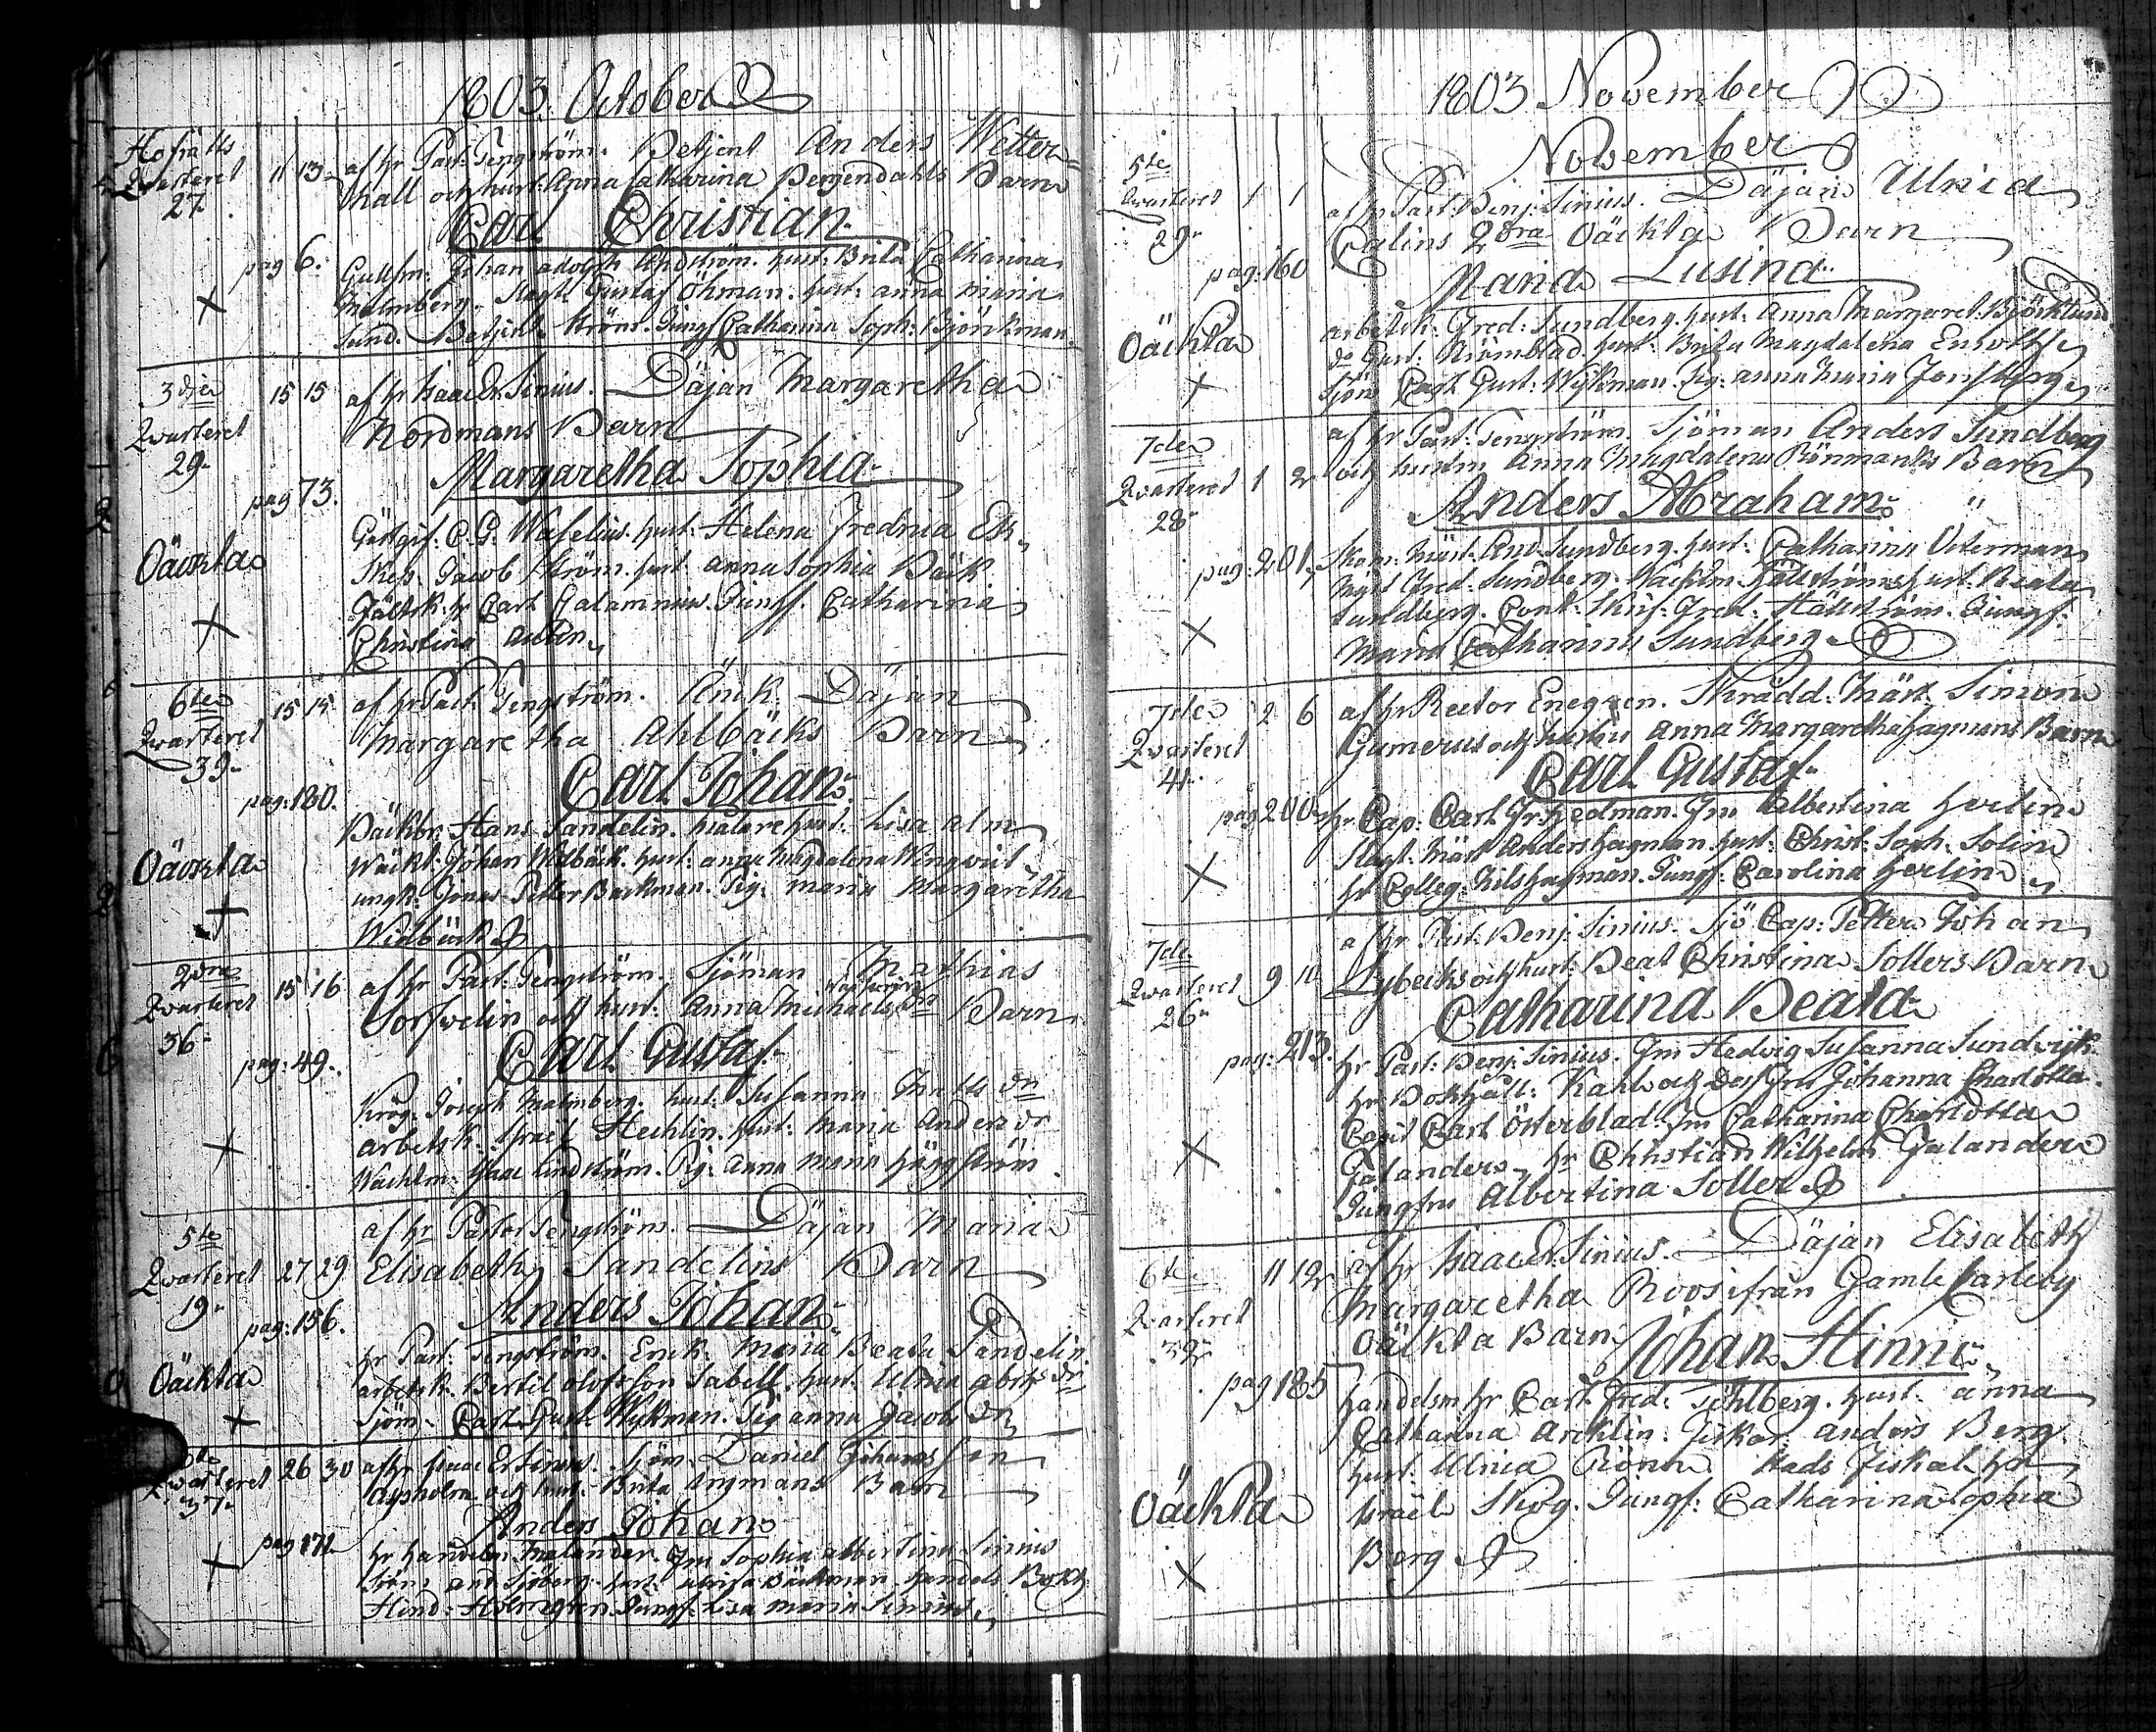 1803. October
Hofrätts
Qvarteret 11 13 af hr Past: Tengström. Betjent Anders Wetter=
27. hall och hust: Anna Catharina Bergendahls Barn
Carl Christian
pag 6. Gullsm: Johan Adolph Andström. hust: Brita Catharina
Malmberg. Slagt: Gustaf Öhman. hust: Anna Maria
Sund. Betjent Ström. Jungf Catharina Soph: Björkman.
3dje
Qvarteret 15 15 af hr Isaac Er. Sinius. Däjan Margaretha
29. Nordmans Barn
Margaretha Sophia
pag 73.
Gästgif: C. G. Waselius. hust: Helena Fredrica Ek
Skep. Jacob Ström. hust Anna Sophia Bäck
Oäckta Fältsk. hr Carl Calamnius. Jungf. Catharina
Christina
6te
Qvarteret 15 15 af hr Past: Tengström. Änk: Däjan
39. Margaretha Ahlbäcks Barn
Carl Johan
pag: 180.
Bäckbr: Hans Sandelin. hust: Lisa Alm
Oäckta Wäkt: Johan Widbäck. hust: Anna Magdalena Wingvist
ungk: Jonas Petter Backman. Pig: Maria Margaretha
Widbäck
2dra
Qvarteret 15 16 af hr Past: Tengström. Sjöman Mathias
36. och hust: Anna Michaelsdr Barn
Carl Gustaf
pag: 49.
Krög. Joseph Malmberg. hust: Susanna Mattsdr
arbetsk. Israel Hechlin. hust: Maria Andersdr
Wachtm: Isac Lindström. Pig: Anna Maria Häggström
5te af hr Pastor Tengström. Däjan Maria
Qvarteret 27 29 Elisabeth Sandelins Barn
19. Anders Johan
pag: 156.
hr Past: Tengström. Enk. Maria Beata Sandelin
Oäckta arbetsk: Bertil Olofsson Sabell. hust: Ulrica
Sjöm: Carl Gust: Wijkman. Pig Anna Jacobsdr
Qvarteret 26 30 af hr Isaac Er Sinius. Sjöm: Daniel Johansson
37. Aspholm och hust: Brita Angmans Barn
Anders Johan
pag 171. hr Handelm Malander. Jfru Sophia Albertina Sinius
And: Sjöberg. hust: Ulrica Bäckman. Handels Bokh
Hind: Holmegren. Jungf: Lisa Maria Sinius.
1803 November
November
5te
Qvarteret 1 1 af hr Past: Benj. Sinius. Däjan Ulrica
29. Calins 2dra Oäckta Barn
pag: 160 Maria Lusina
Oäckta arbetsk: Fred: Sundberg. hust: Anna Margaret Björklund
do Gust: Strömblad. hust: Brita Magdalena Enrooth
Sjöm Carl Gust: Wijkman. Pig: Anna Maria Forsberg
7de af hr Past: Tengström. Sjöman Anders Sundberg
Qvarteret 1 2 och hustru Anna Magdalena Rönmarks Barn
28. Anders Abraham
pag: 201. Skom: Mäst: And. Sundberg. hust: Catharina Österman
Mäst Fred: Sundberg. Wäktm: Hällströms hust: Beata
Sundberg. Cont: Skrif: Fred: Hällström. Jungf:
Maria Catharina Sundberg
7de 2 6 af hr Rector Enegren. Skrädd: Mäst Simon
Qvarteret Gumerus och hustru Anna Margaretha Hagmans Barn
41. Carl Gustaf
pag 200 hr Cap: Carl Fr. Hedman. Jfru Albertina Herlin
Slagt: Mäst Anders Hagman hust: Christ: Soph: Solin
hr Colleg: Nils Hagman. Jungf: Carolina Herlin
7de. af hr Past: Benj. Sinius. Sjö Cap: Petter Johan
Qvarteret 9 10 Lybecks och hust: Beat Christina Sollers Barn
26. Catharina Beata
pag: 213. hr Past: Benj: Sinius. Jfru Hedvig Susanna Sundvijk.
hr Bokhåll: Kahl och Dess Fru Johanna Charlotta.
Capit Carl Österblad. Jfru Catharina Charlotta
Falander. hr Christian Wilhelm Falander
Jungfru Albertina Soller
6te 11 12 af hr Isaac Er. Sinius. Däjan Elisabeth
Qvarteret Margaretha Roos ifrån Gamle Carleby
39. Oäckta Barn Johan Hinric
pag 185 Handelsm hr Carl Fred: Tohlberg. hust. Anna
Catharina Archlin. Fiskar Anders Berg
hust: Ulrica Rönn. Stads Fiskal hr
Oäckta Israel Skog. Jungf: Catharina Sophia
Berg